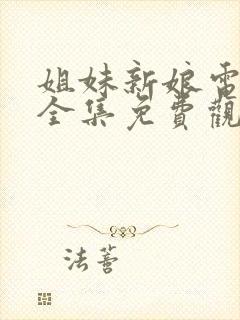 姐妹新娘電
全集免費觀
法蕾